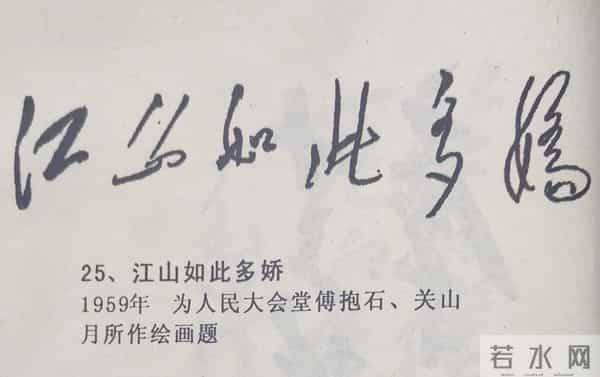 江山如此多娇
25、江山如此多娇
1959年 为人民大会堂傅抱石、关山
月所作绘画题
若水网